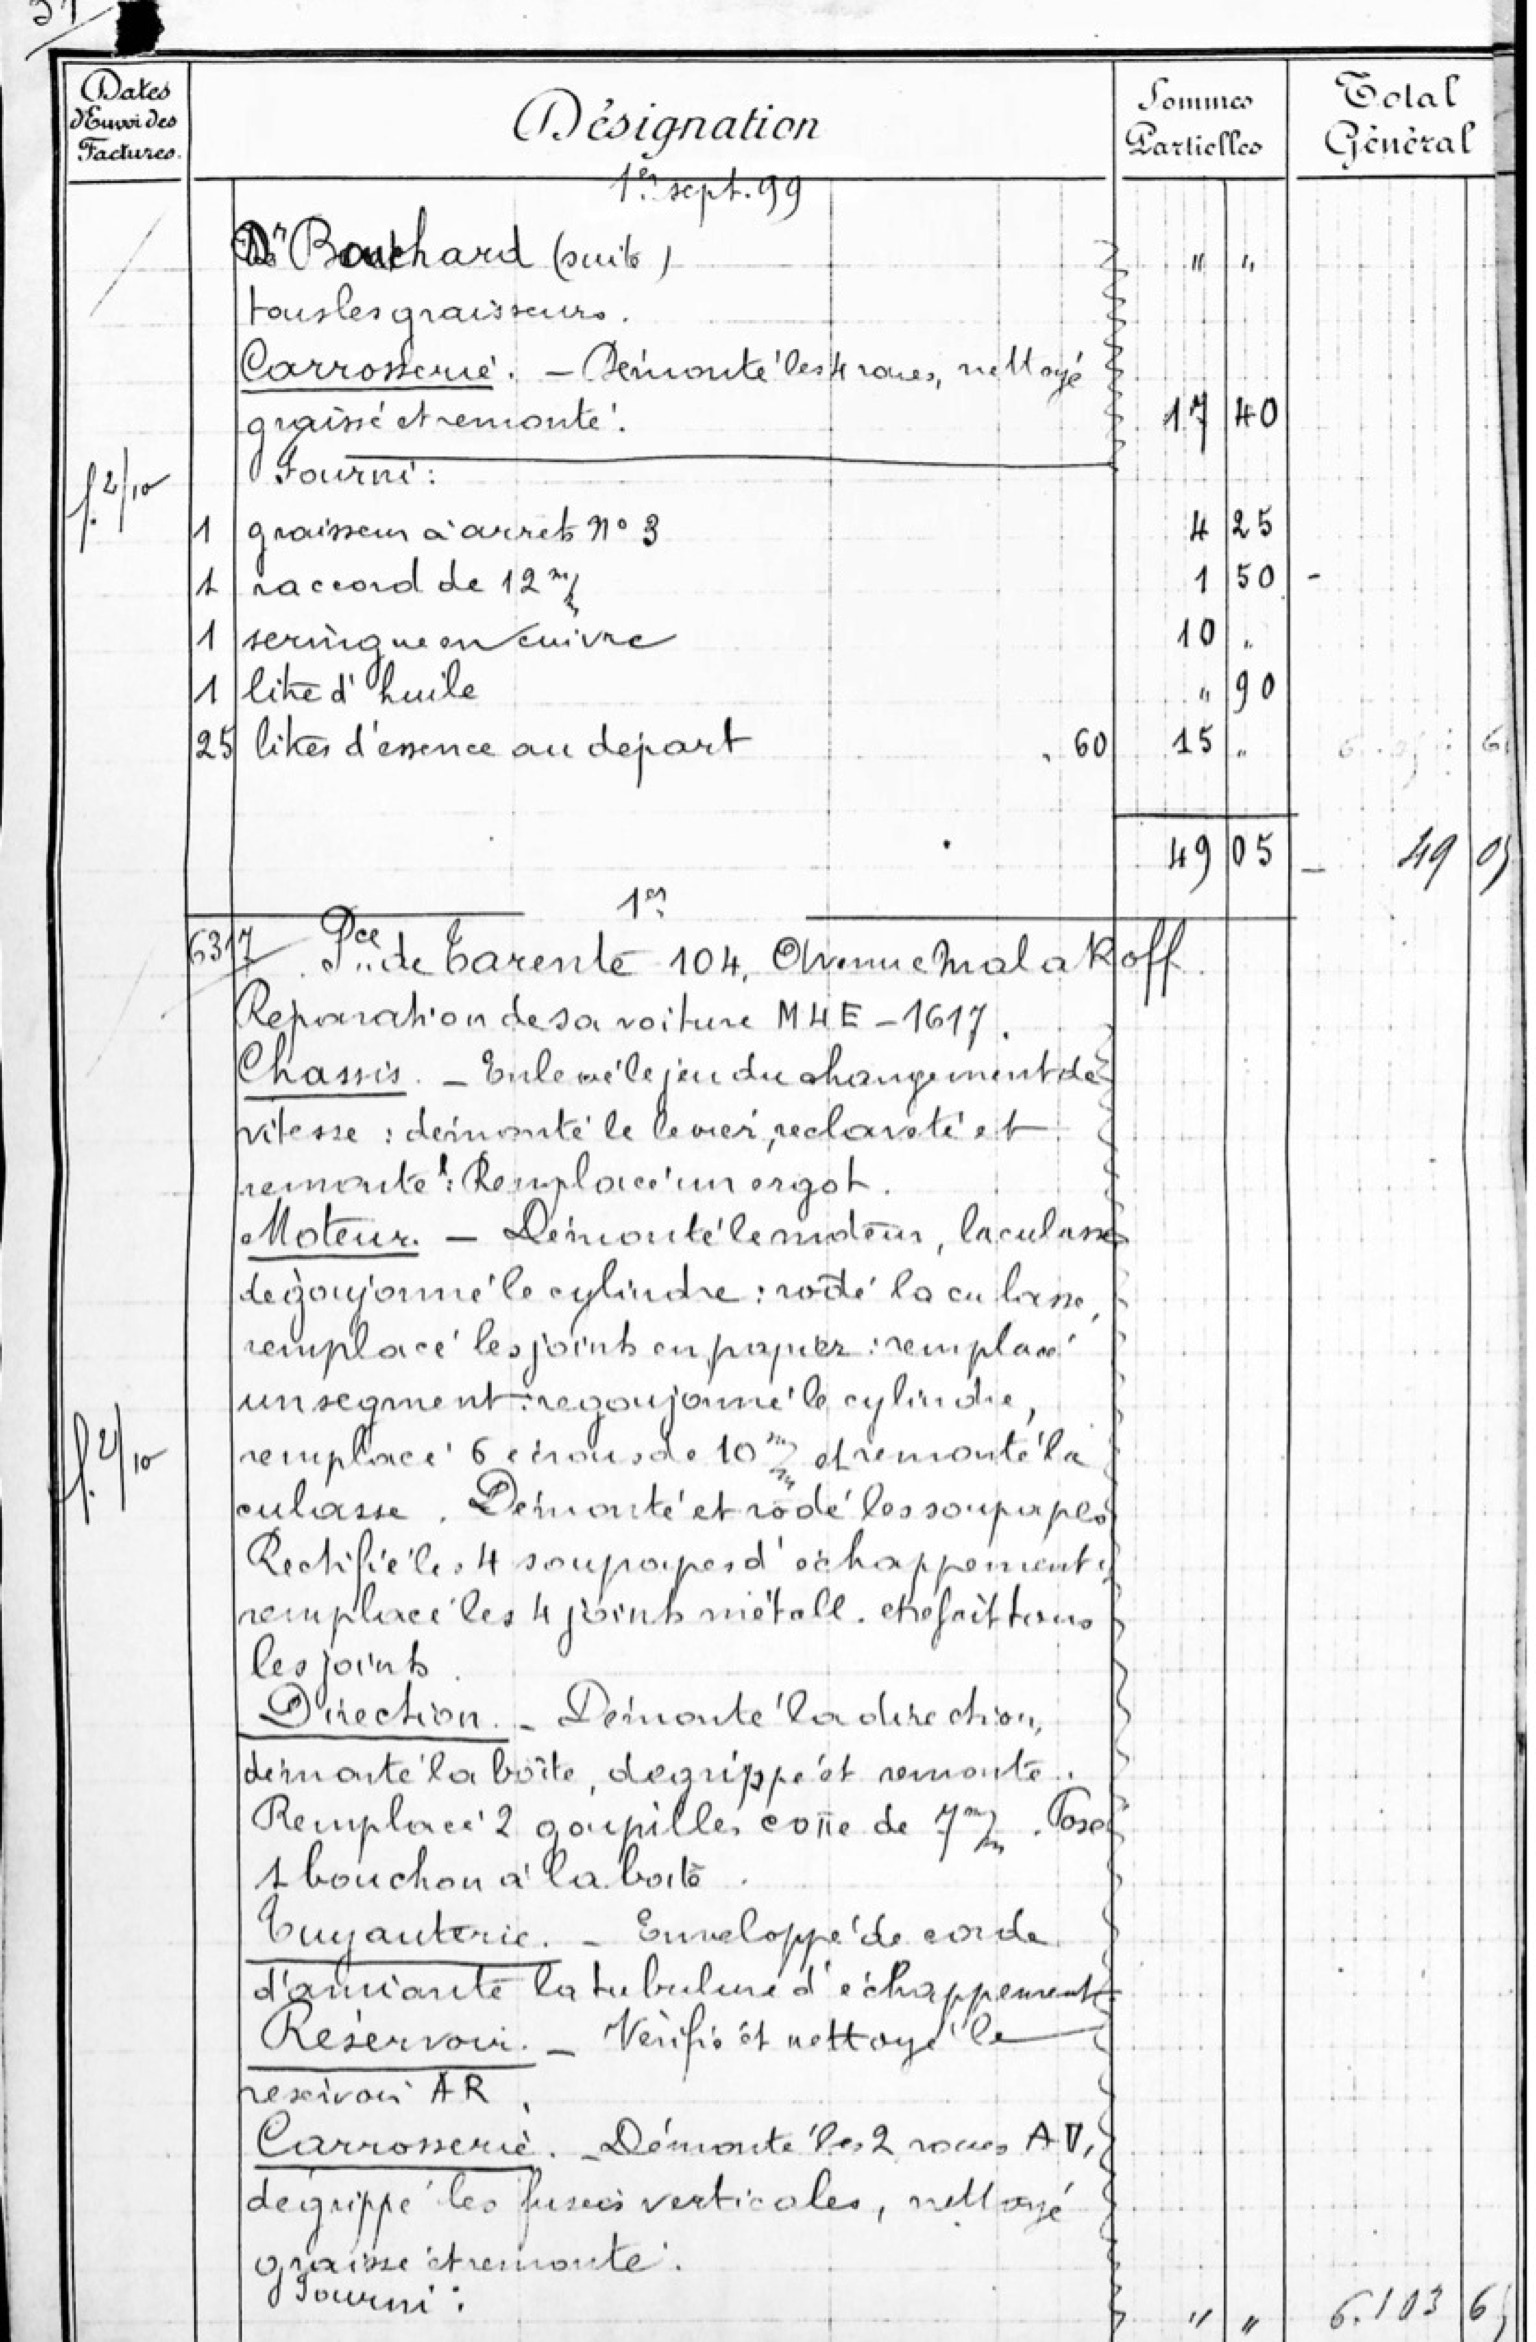 Dates
d'Envoi des
Factures.
Désignation
Sommes
Partielles
Total
Général
1er sept. 99
Dr Bouchard (suite) " "
tous les graisseurs.
Carrosserie. — Démonté les 4 roues, nettoyé
graissé et remonté. 17 40
f. 2/10
Fourni :
1 graisseur à arrêt No 3 4 25
1 raccord de 12 m/m 1 50 -
1 seringue en cuivre 10 "
1 litre d'huile " 90
25 litres d'essence au départ . 60 15 "
49 05 — 49 05
1er
6317 Pce de Tarente 104, Avenue Malakoff.
Réparation de sa voiture M4E - 1617.
Chassis. — Enlevé le jeu du changement de
vitesse : démonté le levier, reclaveté et
remonté : Remplacé un ergot.
Moteur. — Démonté le moteur, la culasse
dégoujonné le cylindre : rodé la culasse,
remplacé les joints en papier : remplacé
un segment : regoujonné le cylindre,
f. 2/10
remplacé 6 écrous de 10 m/m et remonté la
culasse. Démonté et rodé les soupapes
Rectifié les 4 soupapes d'échappement :
remplacé les 4 joints métall. et refait tous
les joints.
Direction. — Démonté la direction,
démonté la boîte, dégrippé et remonté.
Remplacé 2 goupilles cone de 7 m/m. Posé
1 bouchon à la boîte.
Tuyauterie. — Enveloppé de corde
d'amiante la tubulure d'échappement
Réservoir. — Vérifié et nettoyé le
réservoir AR.
Carrosserie. — Démonté les 2 roues AV,
dégrippé les fusées verticales, nettoyé
graissé et remonté.
Fourni : " " 6.103 65